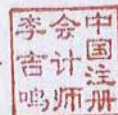 中国注册
会计师
李吉鸣